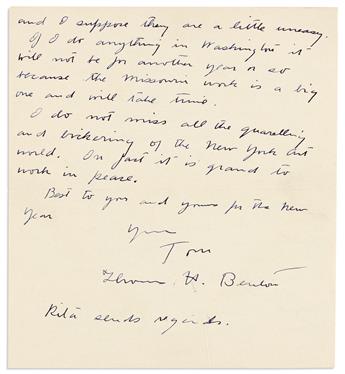 and I suppose they are a little uneasy.
If I do anything in Washington it
will not be for another year or so
because the Missouri work is a big
one and will take time.
I do not miss all the quarelling
and bickering of the New York art
world. In fact it is grand to
work in peace.
Best to you and yours for the New
Year
Yours
Tom
Thomas H. Benton
Rita sends regards.